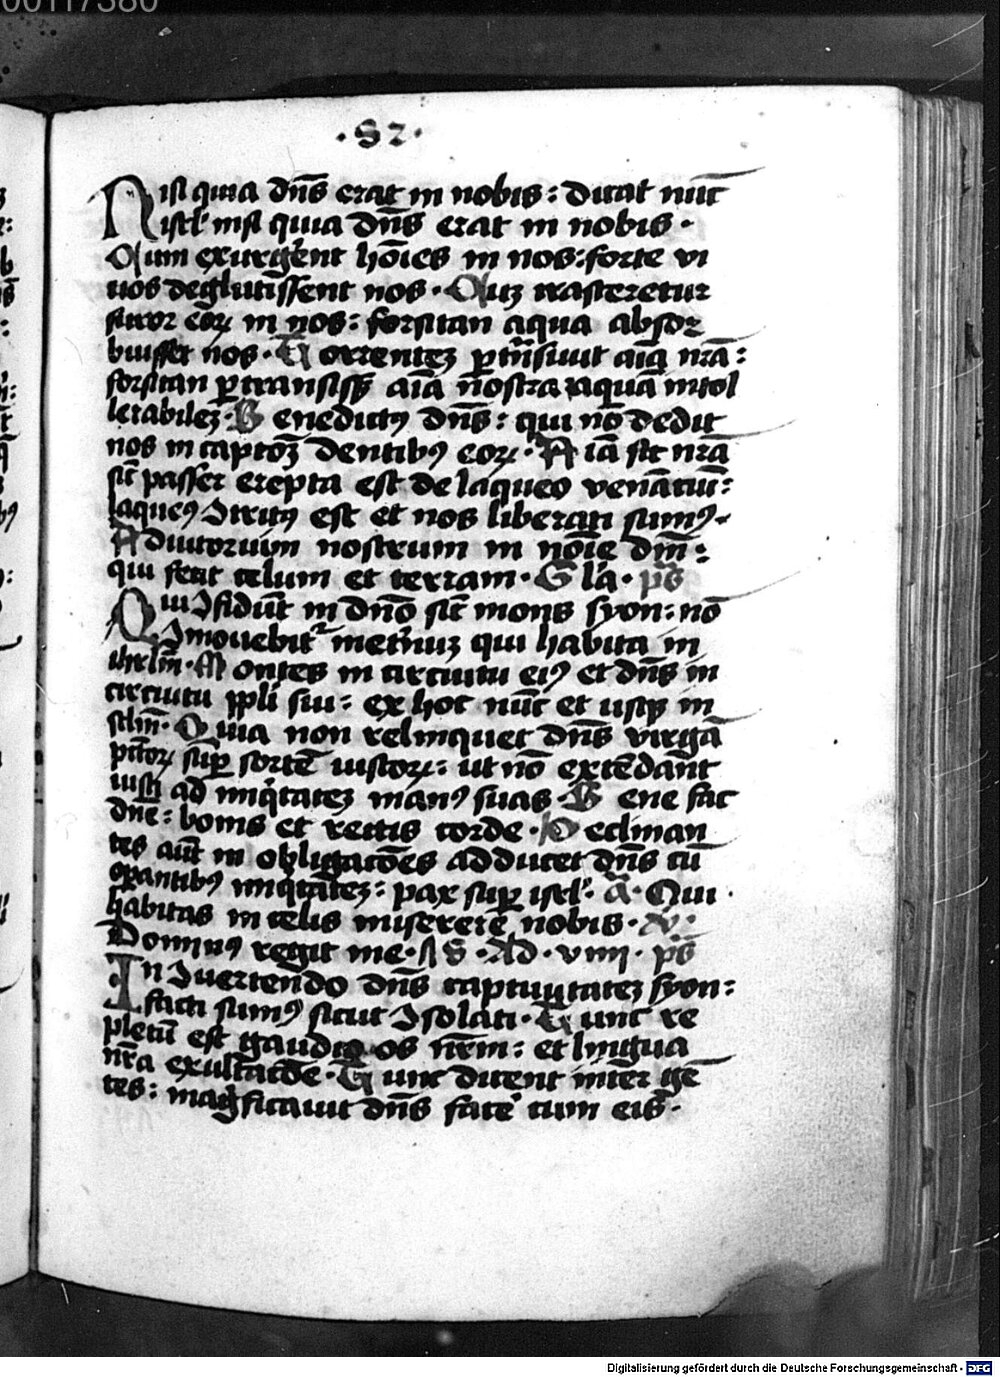 00117380
· 82 ·
Nisi quia dn̄s erat in nobis : dicat nūc
isrl̓ nisi quia dn̄s erat in nobis ·
Cum exurgēnt hōies in nos : forte vi
uos deglutissent nos · Cuꝫ irasceretur
furor eoꝝ in nos : forsitan aqua absor
buisset nos · Torrenteꝫ ꝑtn̄siuit aīa nrā :
forsitan ꝑtransissꝫ aīa nostra aquā intol
lerabileꝫ · Benedictꝰ dn̄s : qui nō dedit
nos in captōꝫ dentibꝰ eoꝝ · Aīa sic nrā
sīc passer erepta est de laqueo venātiū :
laqueꝰ ↄtritꝰ est et nos liberati sumꝰ ·
Adiutorium nostrum in nōie dnī :
qui fecit celum et terram · Gl̓a · ps̄
Qui ↄfidūt in dnō sīc mons syon : nō
ↄmouebit᷑ in et̓nuꝫ qui habita in
ihrlm̄ · Montes in circuitu eiꝰ et dn̄s in
circuitu ppl̓i sui : ex hoc nūc et usqꝫ in
sclm̄ · Quia non relinquet dn̄s virgā
pctōꝝ suꝑ sortē iustoꝝ : ut nō extēdānt
iusti ad iniq̄tateꝫ manꝰ suas · Bene fac
dn̄e : bonis et rectis corde · Declinan
tes aūt in obligacōes adducet dn̄s cū
oꝑantibꝰ iniq̄tāteꝫ : pax suꝑ isrl̓ · a̅ · Qui
habitas in celis miserere nobis · a̅ :
Dominꝰ regit me · A S · Ad · viiij · ps̄
In ↄuertendo dn̄s captiuitateꝫ syon :
facti sumꝰ sicut ↄsolati · Tunc re
pletū est gaudio os nr̄m : et lingua
nr̄a exultacōe · Tunc dicent inter gē
tes : magn̓ficauit dn̄s facē cum eis ·
Digitalisierung gefördert durch die Deutsche Forschungsgemeinschaft - DFG